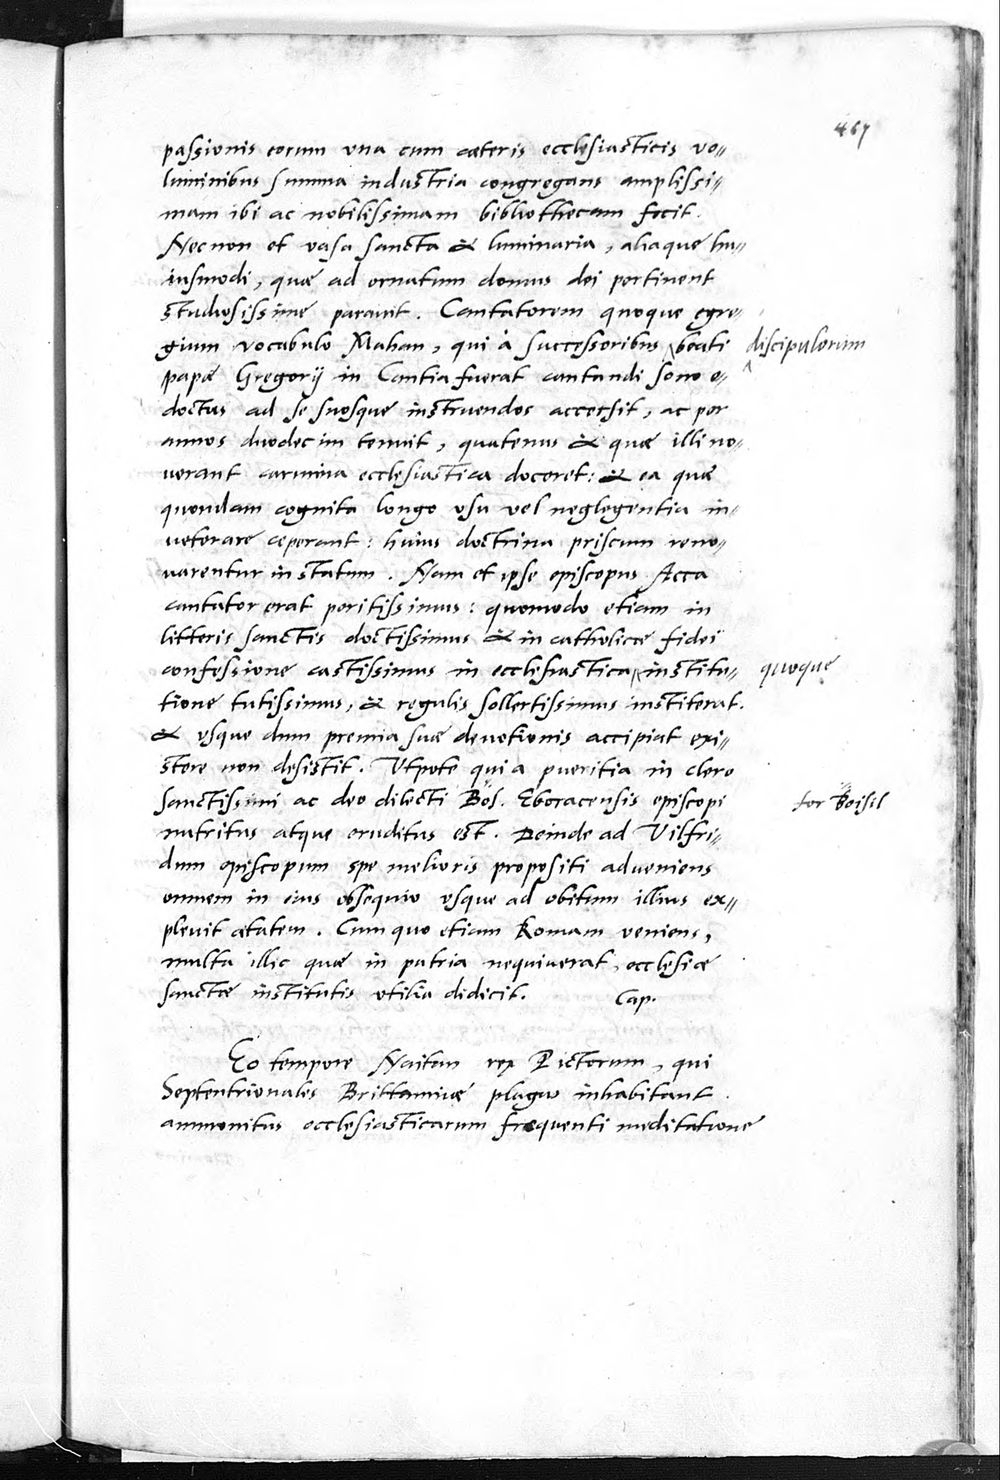 467
passionis eorum vna cum cæteris ecclesiasticis vo//
luminibus summa industria congregans amplissi//
mam ibi ac nobilissimam bibliothecam fecit.
Necnon et vasa sancta & luminaria, aliaque hu//
iusmodi, quæ ad ornatum domus dei pertinent
studiosissime parauit. Cantatorem quoque egre//
gium vocabulo Maban, qui à successoribus beati discipulorum
papæ Gregorij in Cantia fuerat cantandi sono e//
doctus ad se suosque instruendos accersit, ac per
annos duodecim tenuit, quatenus & quæ illi no//
uerant carmina ecclesiastica doceret: & ea quæ
quondam cognita longo vsu vel neglegentia in//
ueterare ceperant: huius doctrina priscum reno//
uarentur in statum. Nam et ipse episcopus Acca
cantator erat peritissimus: quomodo etiam in
litteris sanctis doctissimus & in catholicæ fidei
confessione castissimus in ecclesiastica institu// quoque
tione tutissimus, & regulis sollertissimus institerat.
& vsque dum premia suæ deuotionis accipiat exi//
stere non desistit. Vtpote qui a pueritia in clero
sanctissimi ac deo dilecti Bos. Eboracensis episcopi for Boisil
nutritus atque eruditus est. Deinde ad Vilfri//
dum episcopum spe melioris propositi adueniens
omnem in eius obsequio vsque ad obitum illius ex//
pleuit ætatem. Cum quo etiam Romam veniens,
multa illic quæ in patria nequiuerat, ecclesiæ
sanctæ institutis vtilia didicit. Cap.
Eo tempore Naitan rex Pictorum, qui
Septentrionales Brittaniæ plagas inhabitant.
ammonitus ecclesiasticarum frequenti meditatione